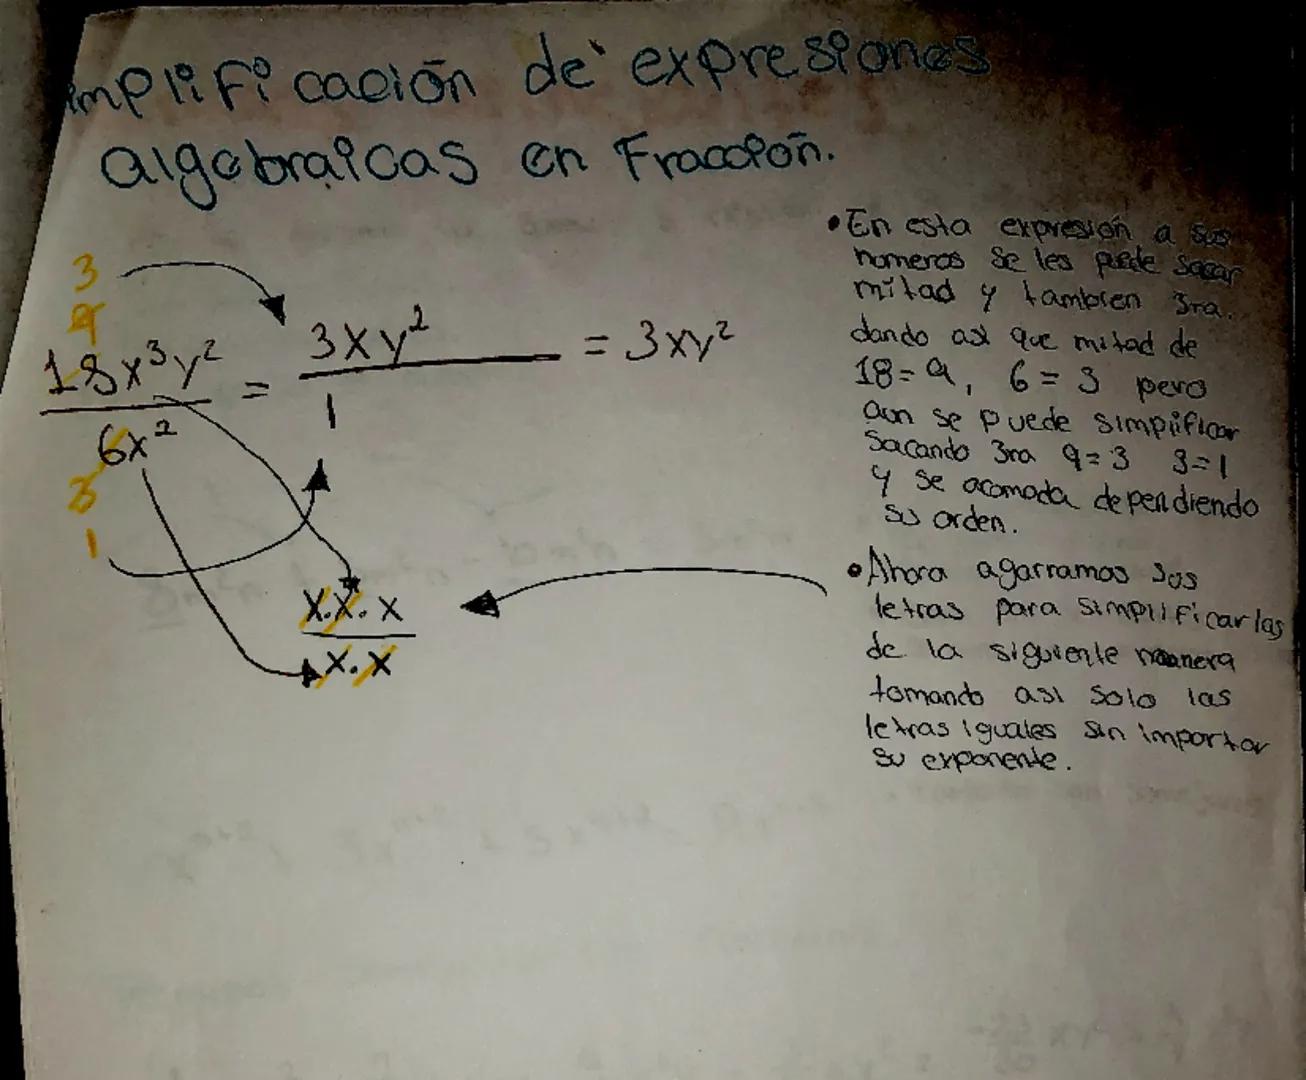 implificación de expresiones
algebraicas en Fracción.
3
9
18x³y² = 3xy² = 3xy²
6x² 1
3
1
x.x.x
x.x
• En esta expresión a sus
numeros se les puede sacar
mitad y tambien 3ra.
dando asi que mitad de
18=9, 6=3 pero
aun se puede simplificar
sacando 3ra 9=3 3=1
y se acomoda dependiendo
su orden.
• Ahora agarramos sus
letras para simplificarlas
de la siguiente manera
tomando asi solo las
letras iguales sin importar
su exponente.